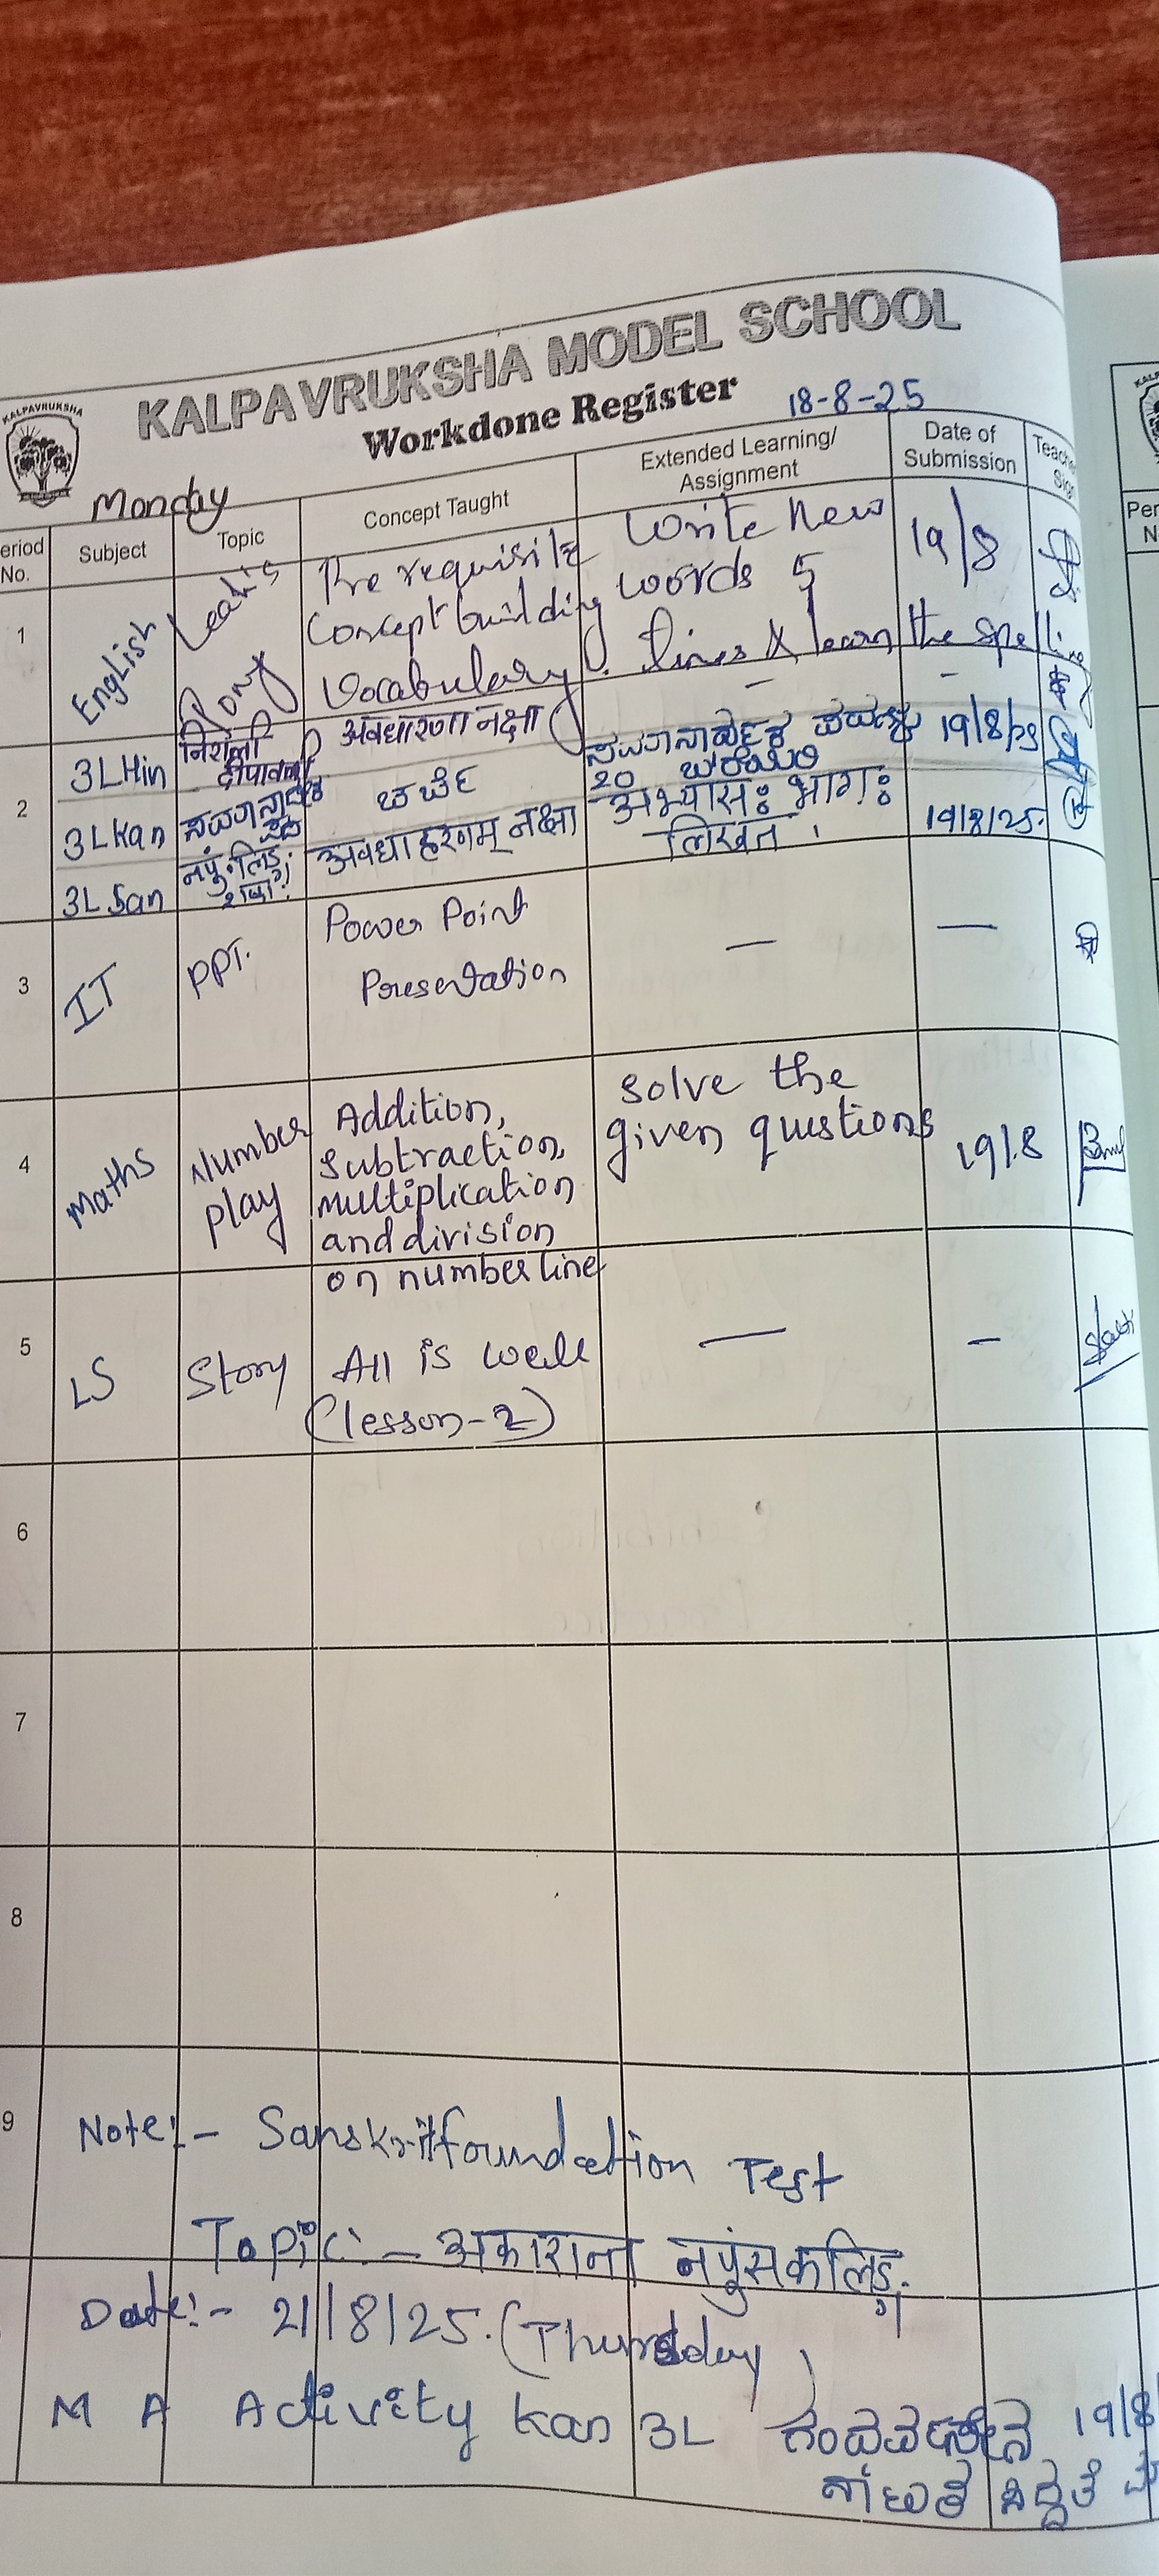 KALPAVRUKSHA MODEL SCHOOL
KALPAVRUKSHA
Workdone Register
18-8-25
Monday
Period No. Subject Topic Concept Taught Extended Learning/ Assignment Date of Submission
1 English Pony Pre requisite Concept building Vocabulary. Write New words 5 lines & learn the spelling 19/8
2 3L Hin निराली दीपावली अवधारणा नक्षा - -
3L Kan ಚರ್ಚೆ 20 ಬರೆಯಿರಿ 19/8/25
3L San नपुं.लिङ्ग नक्षा अभ्यासः भागः लिखत। 19/8/25.
3 IT PPT. Power Point Presentation — —
4 Maths Number play Addition, subtraction, multiplication and division on number line solve the given questions 19/8
5 LS Story All is well (lesson-2) — -
6
7
8
9 Note:- Sanskrit foundation Test
Topic:- अकारान्त नपुंसकलिङ्ग.
Date:- 21/8/25. (Thursday)
M A Activity Kan 3L 19/8